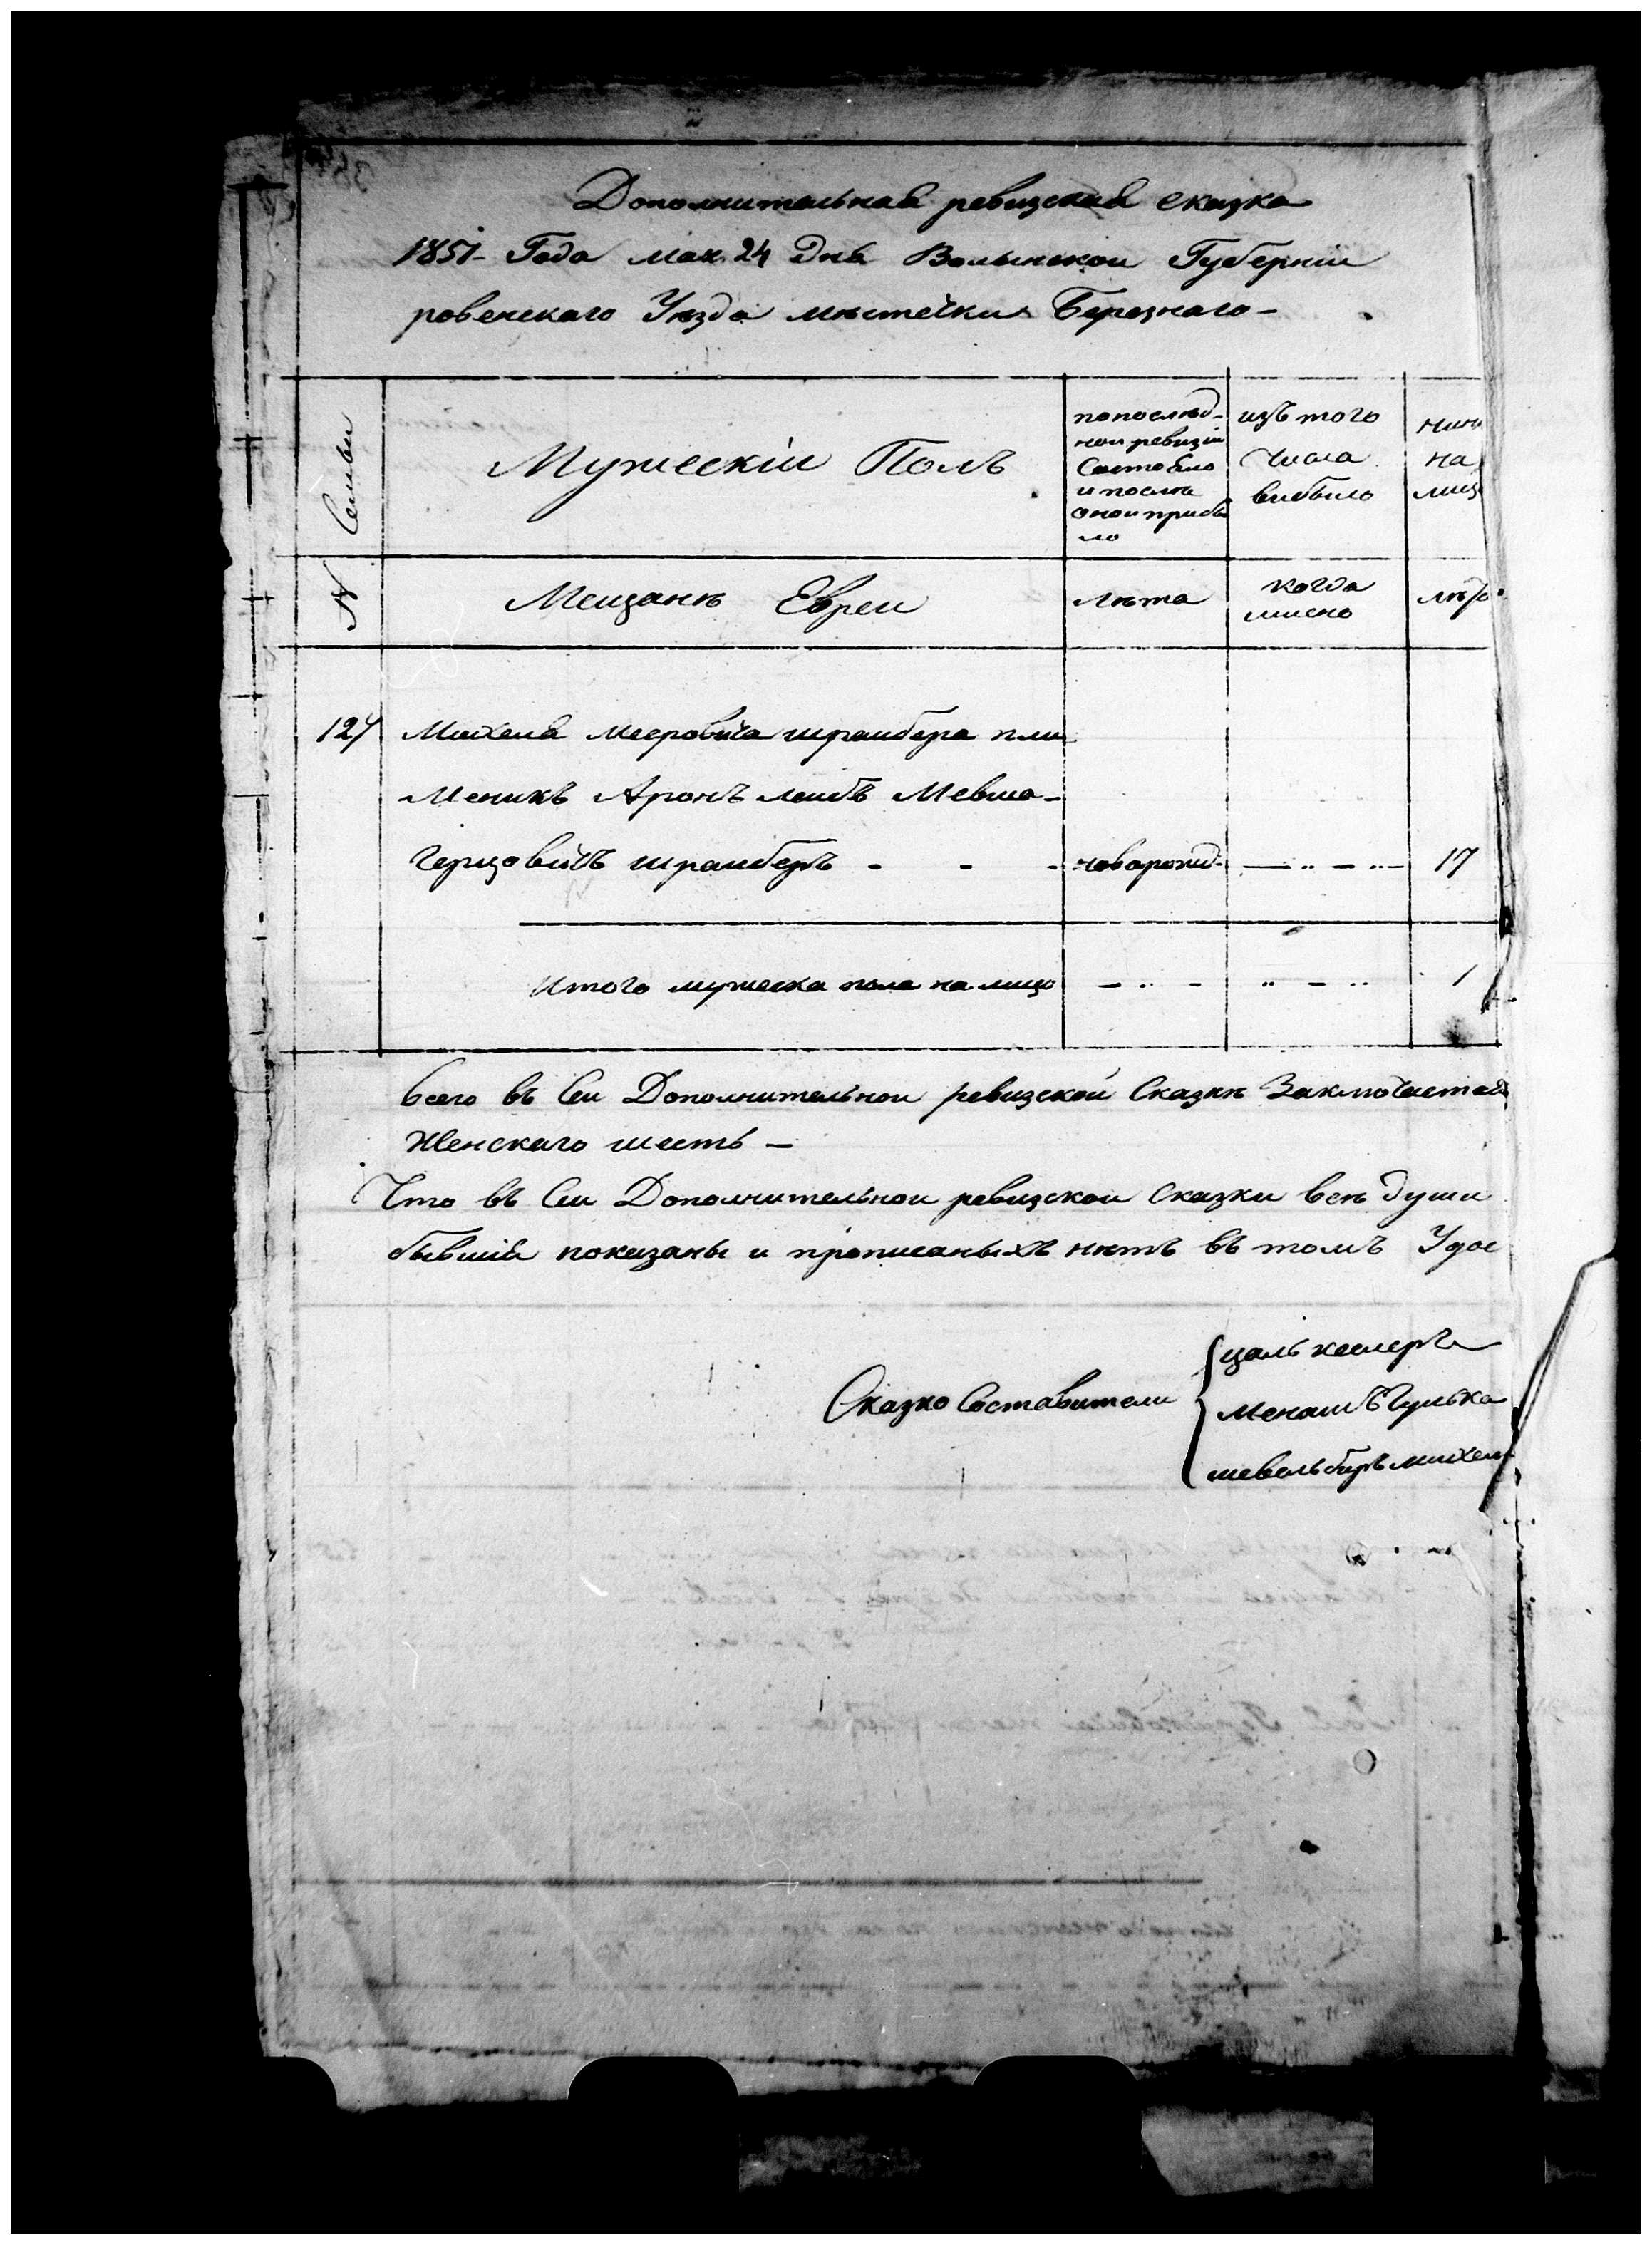 Дополнительная ревизская сказка
1851 Года мая 24 Дня Волынскои Губернiи
ровенскаго Уѣзда мѣстечка Березнаго
№ Семьи
Мужескiи Полъ
по послѣд-
нои ревизiи
Состояло
и послѣ
онои прибы
ло
изъ того
Числа
выбыло
нын
на
лиц
Мещанѣ Евреи
лѣта
когда
имено
лѣта
127 Михеля Мееровича шраибера пли
Меникъ Аронъ леибъ Мевша-
Герцовичъ шраиберъ - - - новорожд- 17
Итого мужеска пола на лицо 1
Всего въ Сеи Дополнительнои ревизскои Сказкѣ Заключается
Женскаго шесть -
Что въ Сеи Дополнительнои ревизскои Сказки всѣ души
бывшiя показаны и прописаныхъ нѣтъ въ томъ Удос
Сказко Составители
цаль келеръ
менашъ Гулька
шевель беръ михел